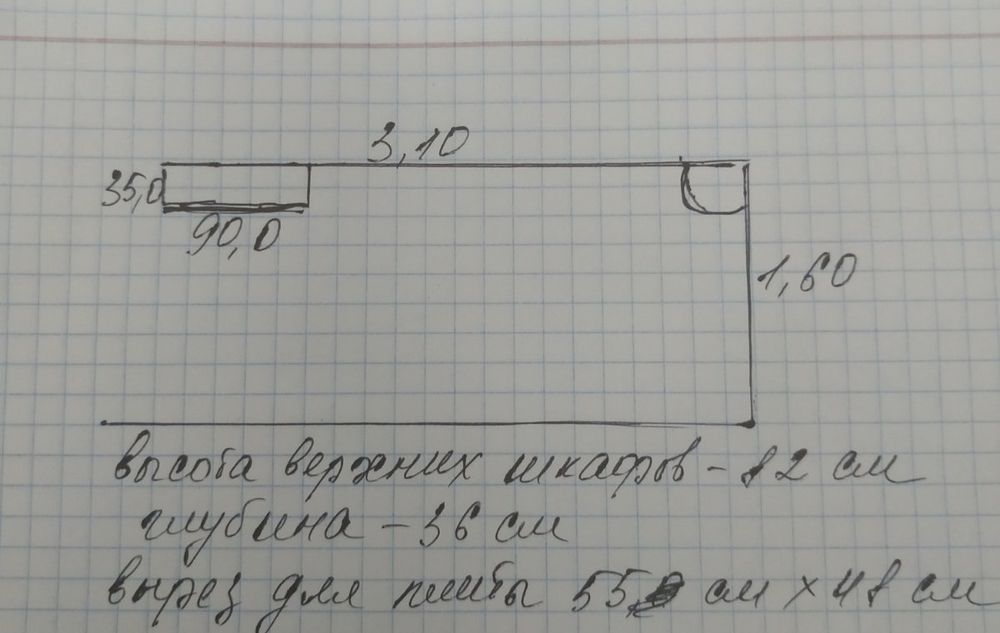 3,10
35,0
90,0
1,60
высота верхних шкафов - 82 см
глубина - 36 см
вырез для плиты 55 см х 48 см